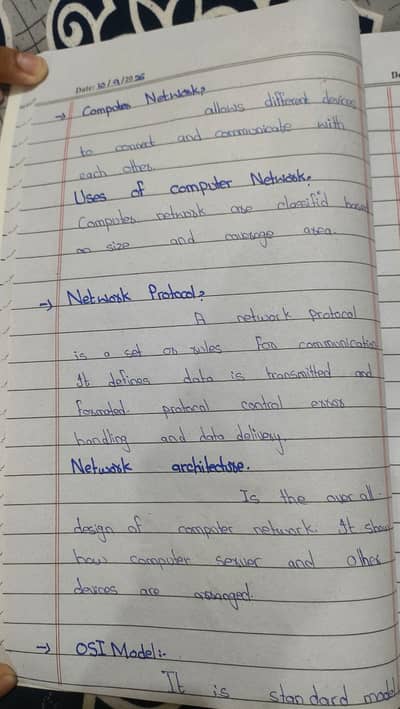 Date: 10/9/2025
De
→ Computer Network?
allows different devices
to connect and communicate with
each other.
Uses of computer Network.
Computer network are classifid based
on size and coverage area.
→ Network Protocol?
A network protocol
is a set on rules For communication
It defines data is transmitted and
Formated. protocol control error
handling and data delivery.
Network architecture.
Is the over all
design of computer network. It show
how computer server and other
devices are arranged.
→ OSI Model:-
It is standard model